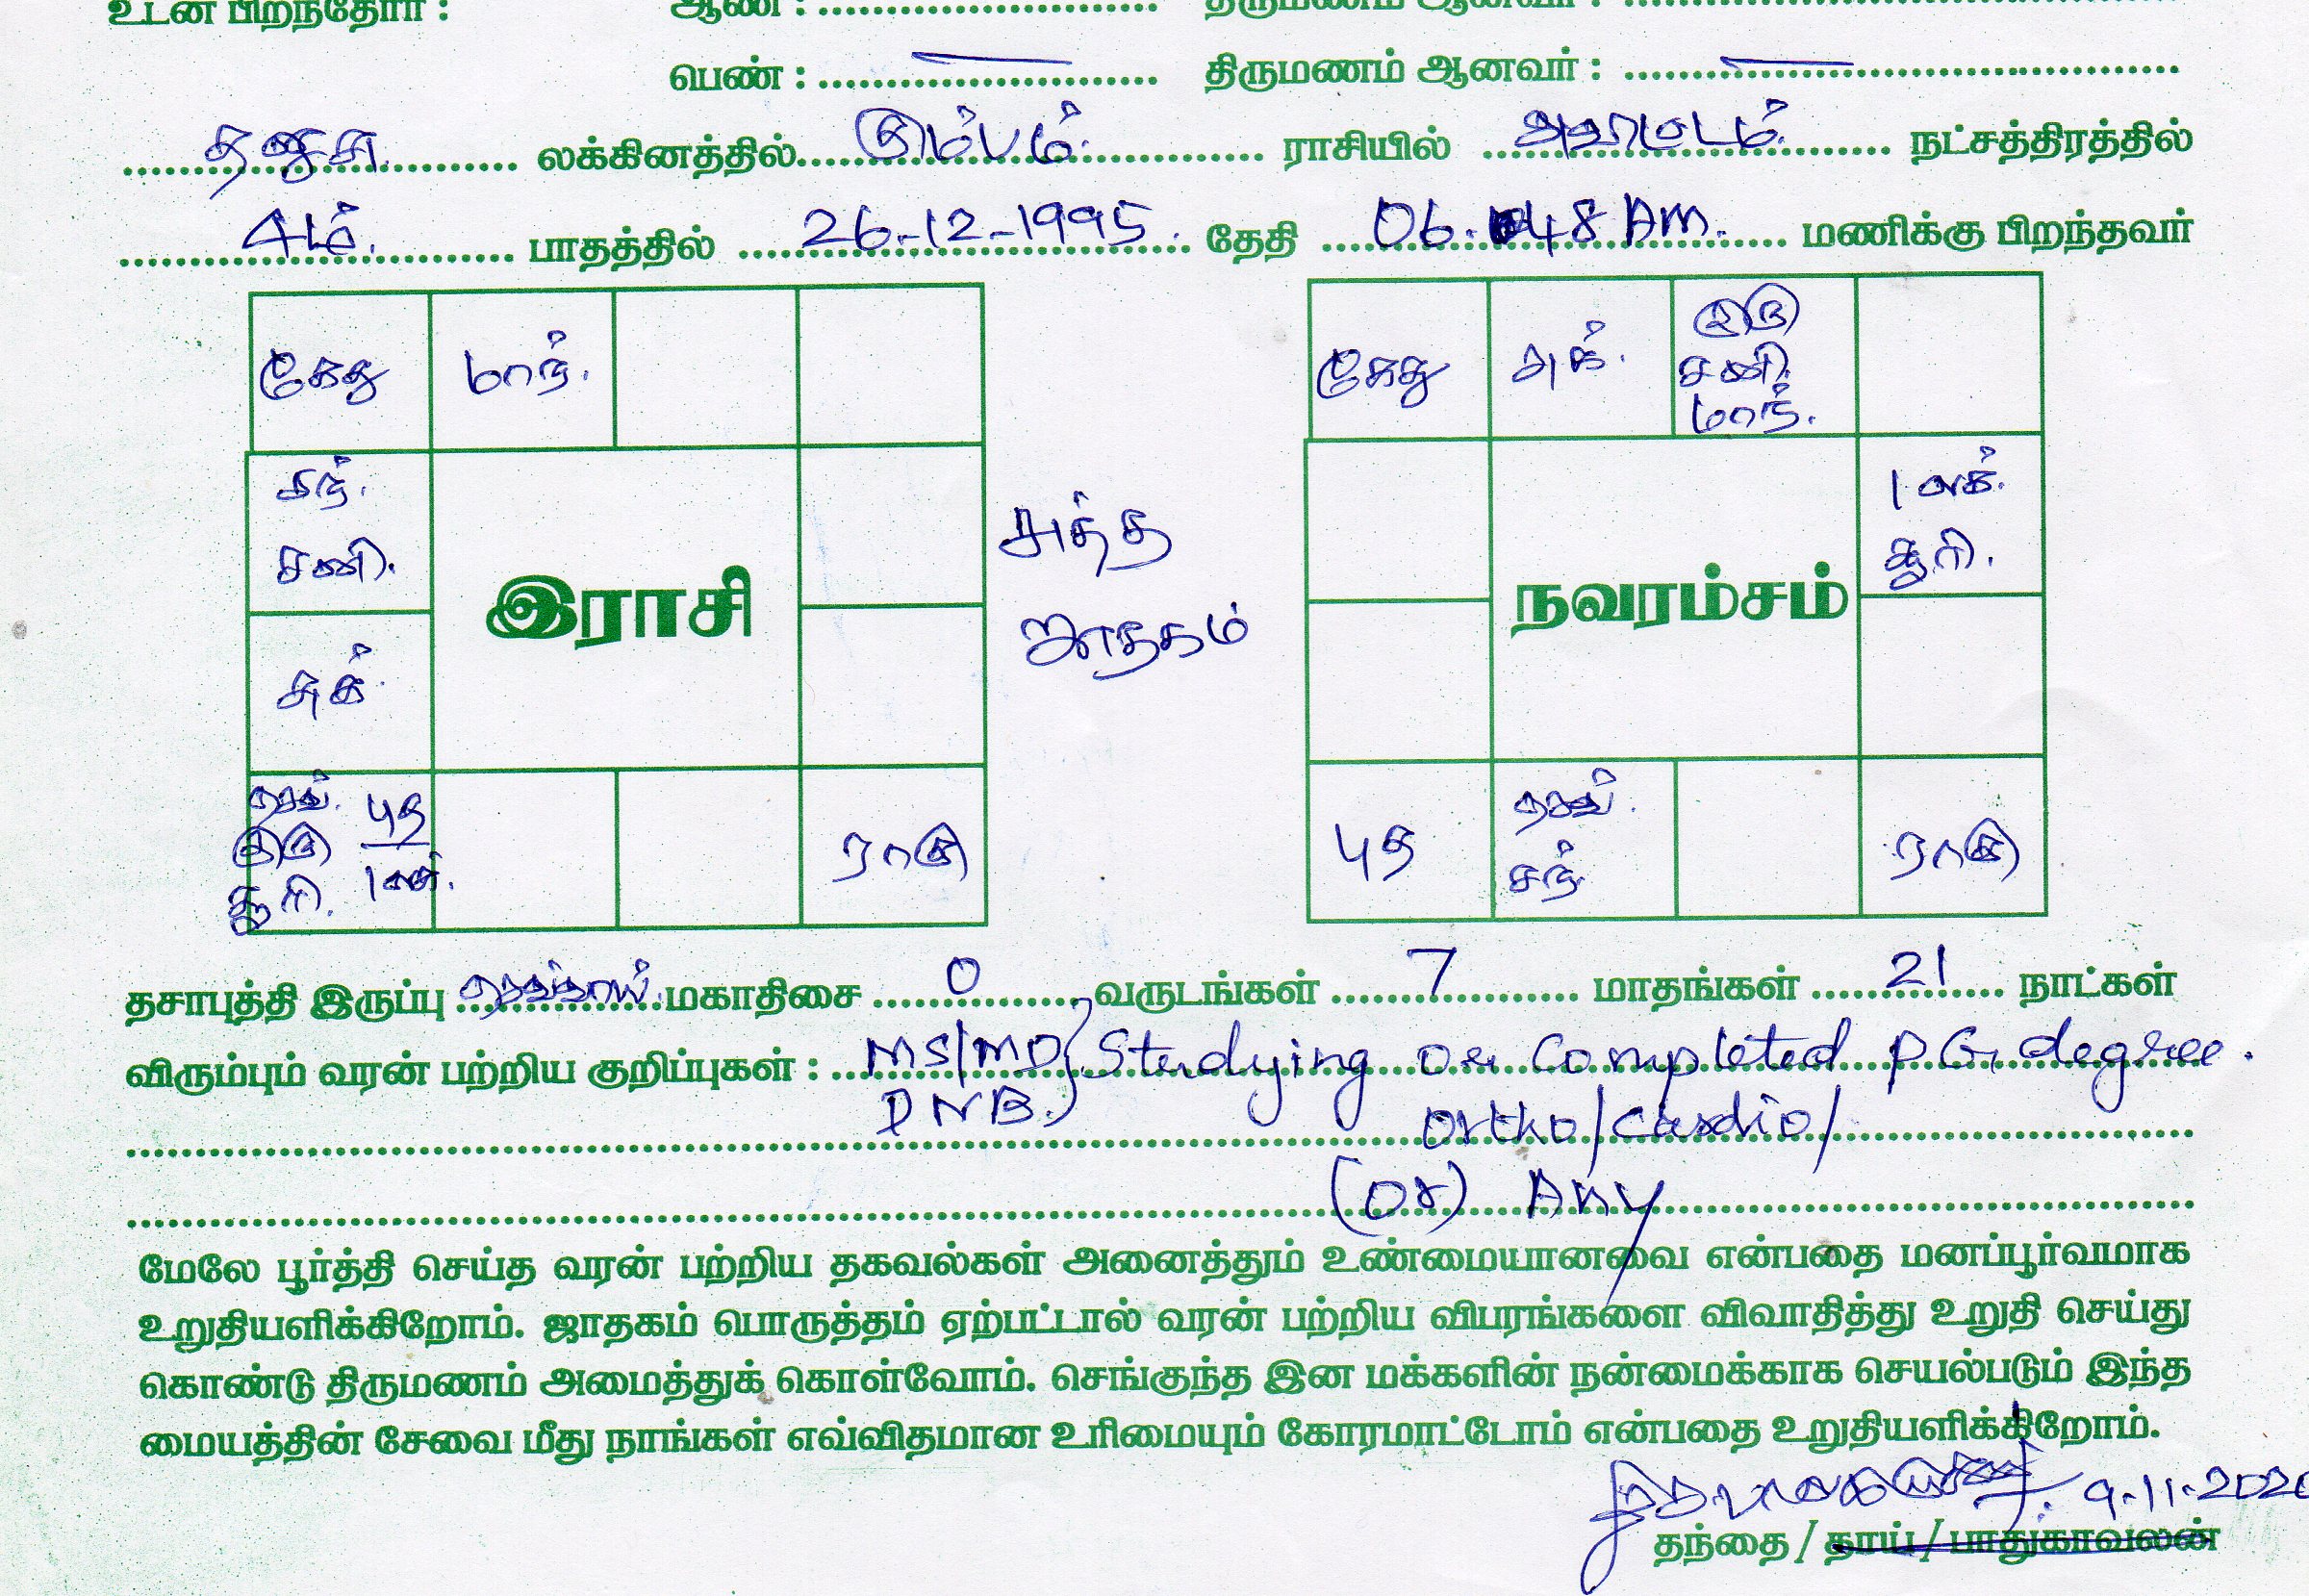 உடன் பிறந்தோர் : ஆண் : திருமணம் ஆனவர் :
பெண் : — திருமணம் ஆனவர் : —
தனுசு லக்கினத்தில் கும்பம் ராசியில் அவிட்டம் நட்சத்திரத்தில்
4ம் பாதத்தில் 26-12-1995 தேதி 06.48 AM. மணிக்கு பிறந்தவர்
கேது மாந். கேது சுக். குரு சனி. மாந்.
சந். சனி. லக். சூரி.
சுத்த ஜாதகம்
இராசி நவரம்சம்
சுக்
செவ். குரு சூரி. புத லக். ராகு புத செவ். சந். ராகு
தசாபுத்தி இருப்பு செவ்வாய் மகாதிசை 0 வருடங்கள் 7 மாதங்கள் 21 நாட்கள்
விரும்பும் வரன் பற்றிய குறிப்புகள் : MS/MD, Studying or Completed P.G. degree.
DNB. Ortho/Cardio/
(or) Any
மேலே பூர்த்தி செய்த வரன் பற்றிய தகவல்கள் அனைத்தும் உண்மையானவை என்பதை மனப்பூர்வமாக
உறுதியளிக்கிறோம். ஜாதகம் பொருத்தம் ஏற்பட்டால் வரன் பற்றிய விபரங்களை விவாதித்து உறுதி செய்து
கொண்டு திருமணம் அமைத்துக் கொள்வோம். செங்குந்த இன மக்களின் நன்மைக்காக செயல்படும் இந்த
மையத்தின் சேவை மீது நாங்கள் எவ்விதமான உரிமையும் கோரமாட்டோம் என்பதை உறுதியளிக்கிறோம்.
9.11.2020
தந்தை / தாய் / பாதுகாவலன்